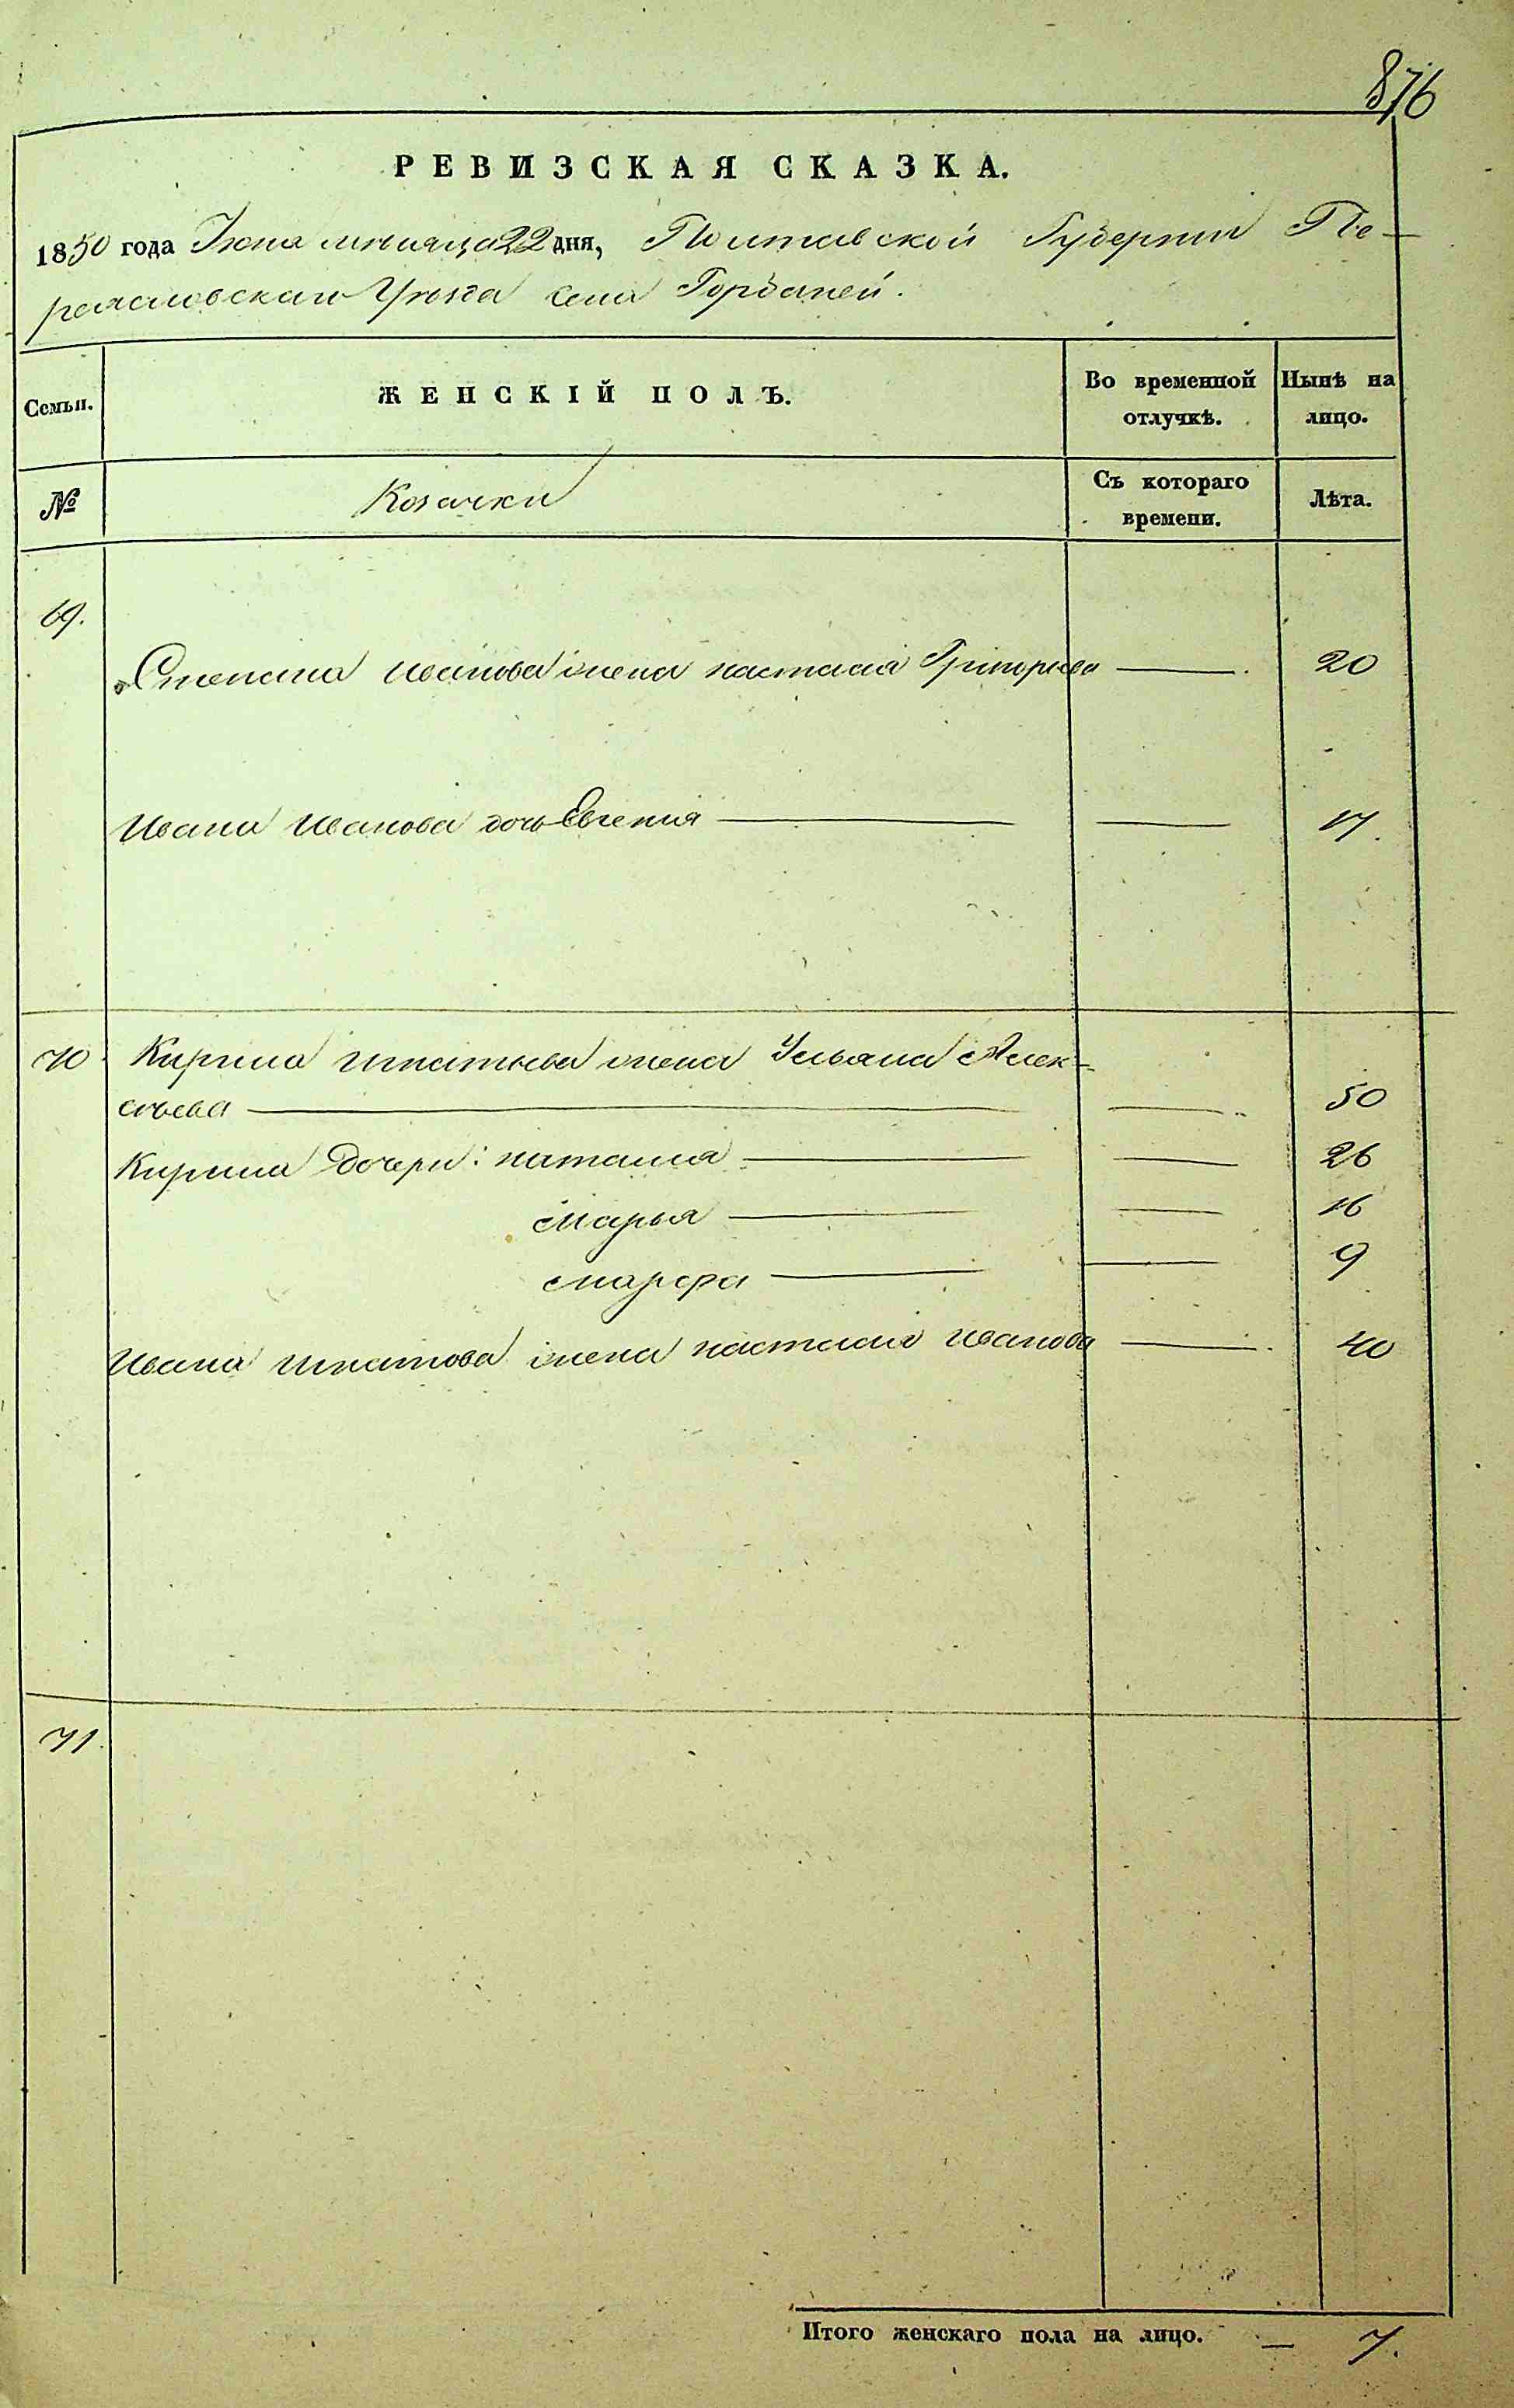 876
РЕВИЗСКАЯ СКАЗКА.
1850 года Іюня мѣсяца 22 дня, Полтавской Губерніи Пе-
реяславскаго Уѣзда Села Горбаней.
Семьи. ЖЕНСКІЙ ПОЛЪ. Во временной отлучкѣ. Нынѣ на лицо.
№ Козачки Съ котораго времени. Лѣта.
69.
Степана Иванова жена Настасія Григорьева — 20
Ивана Иванова дочь Евгенія — — 17.
70 Кирила Игнатьева жена Ульяна Алек-
сѣева — — 50
Кирила дочери: Наталия — — 26
Марья — — 16
Марфа — — 9
Ивана Игнатова жена Настасия Иванова — 40
71.
Итого женскаго пола на лицо. — 7.